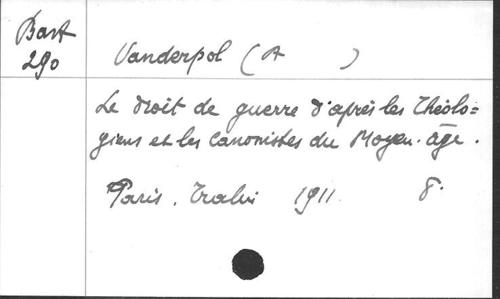 Bart
290
Vanderpol (A )
Le droit de guerre d'après les Théolo=
giens et les Canonistes du Moyen-âge.
Paris. Tralin 1911. 8°